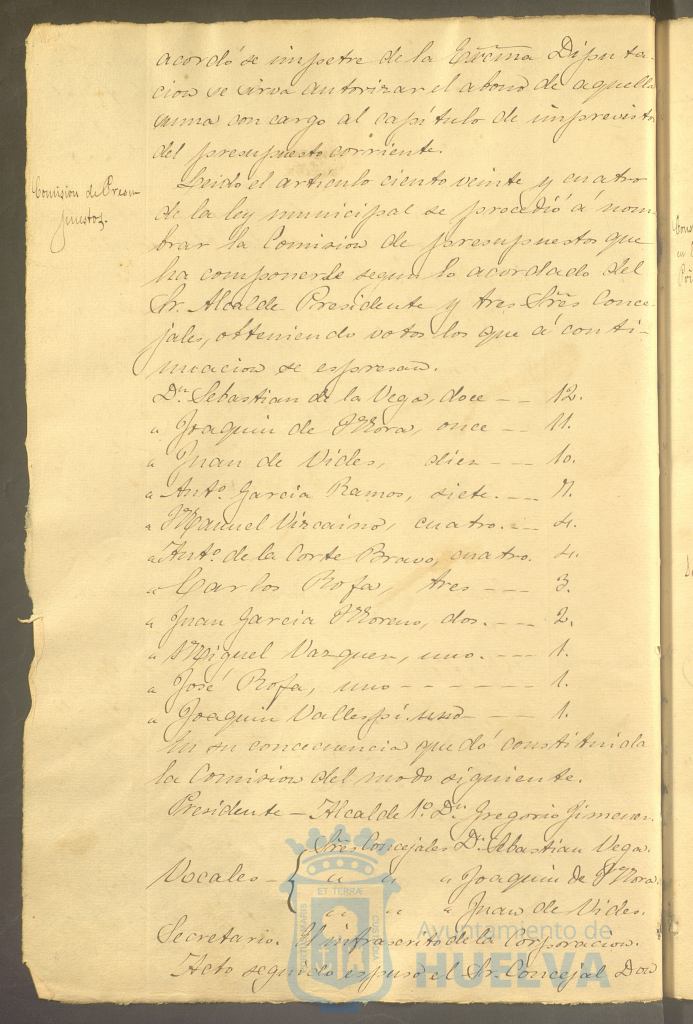 acordó se impetre de la Excma Diputa-
cion se sirva autorizar el abono de aquella
suma con cargo al capítulo de imprevistos
del presupuesto corriente.
Comision de Presu-
puestos.
Leido el artículo ciento veinte y cuatro
de la ley municipal se procedió á nom-
brar la Comision de presupuestos que
ha componerse segun lo acordado del
Sr. Alcalde Presidente y tres Sres Conce-
jales, obteniendo votos los que á conti-
nuacion se espresan.
Dn. Sebastian de la Vega, doce -- 12.
" Joaquin de Mora, once -- 11.
" Juan de Vides, diez --- 10.
" Anto. Garcia Ramos, siete. --- 7.
" Manuel Vizcaino, cuatro. -- 4.
" Anto. de la Corte Bravo, cuatro. 4.
" Carlos Rofa, tres --- 3.
" Juan Garcia Moreno, dos. --- 2.
" Miguel Vazquez, uno. --- 1.
" José Rofa, uno ------ 1.
" Joaquin Vallespi. uno --- 1.
En su concecuencia quedó constituida
la Comision del modo siguiente.
Presidente - Alcalde 1º. Dn. Gregorio Jimenez.
Sres Concejales Dn. Sebastian Vega.
Vocales - " " " Joaquin de Mora.
" " " Juan de Vides.
Secretario. El infrascrito de la Corporacion.
Acto seguido espuso el Sr. Concejal Don
ET TERRÆ
Ayuntamiento de
HUELVA